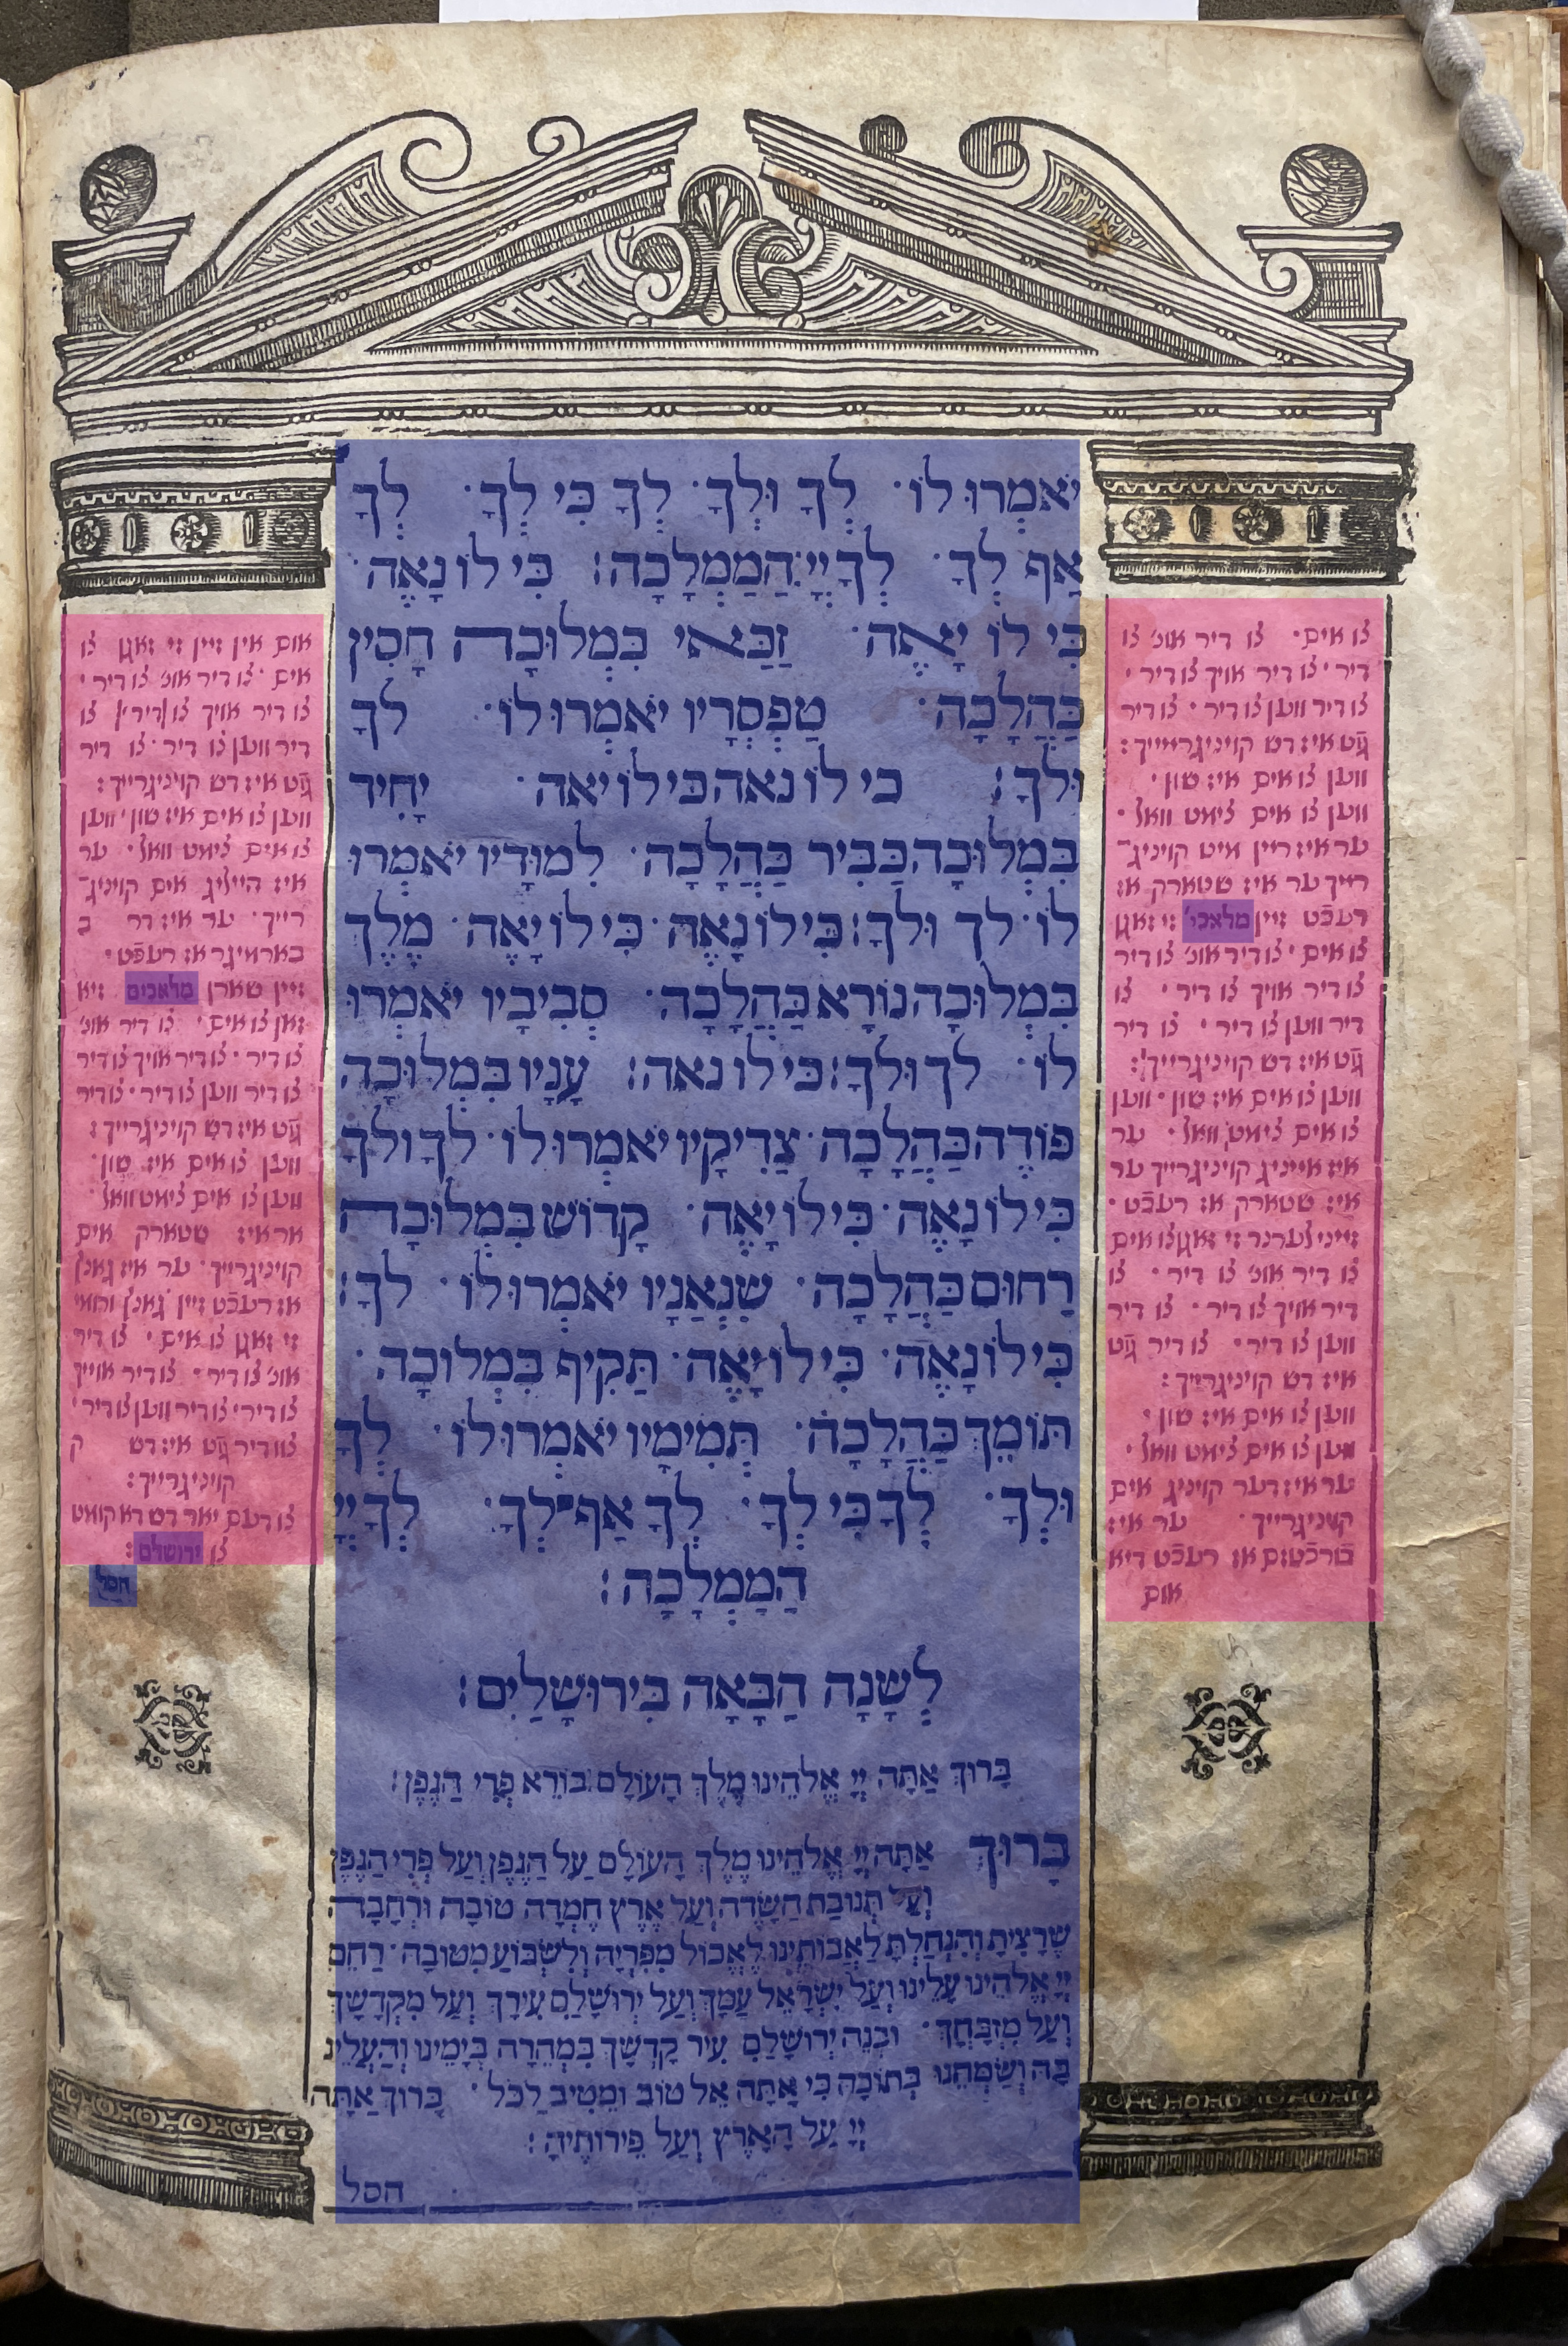 יֹאמְרוּ לוֹ · לְךָ וּלְךָ · לְךָ כִּי לְךָ · לְךָ
אַף לְךָ · לְךָ יְיָ הַמַמְלָכָה : כִּי לוֹ נָאֶה ·
כִּי לוֹ יָאֶה · זַכַּאי בִּמְלוּכָה חָסִין
כַּהֲלָכָה · טַפְסְרָיו יֹאמְרוּ לוֹ · לךָ
וּלְךָ : כי לוֹ נאה כי לוֹ יאה · יָחִיד
בִּמְלוּכָה כַּבִּיר כַּהֲלָכָה · לִמוּדָיו יֹאמְרוּ
לוֹ · לך וּלְךָ : כִּי לוֹ נָאֶה · כִּי לוֹ יָאֶה · מֶלֶךְ
בִּמְלוּכָה נוֹרָא כַּהֲלָכָה · סְבִיבָיו יֹאמְרוּ
לוֹ · לך וּלְךָ : כי לו נאה : עָנָיו בִּמְלוּכָה
פּוֹדֶה כַּהֲלָכָה · צַדִיקָיו יֹאמְרוּ לוֹ · לךָ ולךָ
כִּי לוֹ נָאֶה · כִּי לוֹ יָאֶה · קָדוֹשׁ בִּמְלוּכָה
רַחוּם כַּהֲלָכָה · שִׁנְאַנָיו יֹאמְרוּ לוֹ · לךָ :
כִּי לוֹ נָאֶה · כִּי לוֹ יָאֶה · תַּקִיף בִּמְלוּכָה ·
תּוֹמֵךְ כַּהֲלָכָה · תְּמִימָיו יֹאמְרוּ לוֹ · לְךָ
וּלְךָ · לְךָ כִּי לְךָ · לְךָ אַף לְךָ · לְךָ יְיָ
הַמַמְלָכָה :
לְשָׁנָה הַבָּאָה בִּירוּשָׁלַיִם :
בָּרוּךְ אַתָּה יְיָ אֱלֹהֵינוּ מֶלֶךְ הָעוֹלָם בּוֹרֵא פְּרִי הַגֶפֶן :
בָּרוּךְ אַתָּה יְיָ אֱלֹהֵינוּ מֶלֶךְ הָעוֹלָם עַל הַגֶפֶן וְעַל פְּרִי הַגֶפֶן
וְעַל תְּנוּבַת הַשָׂדֶה וְעַל אֶרֶץ חֶמְדָה טוֹבָה וּרְחָבָה
שֶׁרָצִיתָ וְהִנְחַלְתָּ לַאֲבוֹתֵינוּ לֶאֱכוֹל מִפִּרְיָהּ וְלִשְׂבּוֹעַ מִטוּבָהּ · רַחֵם
יְיָ אֱלֹהֵינוּ עָלֵינוּ וְעַל יִשְׂרָאֵל עַמָךְ וְעַל יְרוּשָׁלַם עִירָךְ וְעַל מִקְדָשָׁךְ
וְעַל מִזְבָּחָךְ · וּבְנֵה יְרוּשָׁלַם עִיר קָדְשָׁךְ בִּמְהֵרָה בְּיָמֵינוּ וְהַעֲלֵינוּ
בָּהּ וְשַׂמְּחֵנוּ בְּתוֹכָהּ כִּי אַתָּה אֵל טוֹב וּמֵטִיב לַכֹּל · בָּרוּךְ אַתָּה
יְיָ עַל הָאָרֶץ וְעַל פֵּירוֹתֶיהָ :
חסל
צו אים · צו דיר אונ' צו
דיר · צו דיר אויך צו דיר ·
צו דיר ווען צו דיר · צו דיר
גֿט איז דש קויניגרייך :
ווען צו אים איז טון ·
ווען צו אים צימט וואל ·
ער איז ריין מיט קויניג־
רייך ער איז שטארק אז
רעכֿט זיין מלאכי' זי זאגן
צו אים · צו דיר אונ' צו דיר
צו דיר אויך צו דיר · צו
דיר ווען צו דיר · צו דיר
גֿט איז דש קויניגרייך :
ווען צו אים איז טון · ווען
צו אים צימט וואל · ער
איז אייניג קויניגרייך ער
איז שטארק אז רעכֿט ·
זייני לערנר זי זאגן צו אים
צו דיר אונ' צו דיר · צו
דיר אויך צו דיר · צו דיר
ווען צו דיר · צו דיר גֿט
איז דש קויניגרייך :
ווען צו אים איז טון ·
ווען צו אים צימט וואל ·
ער איז דער קויניג אים
קויניגרייך · ער איז
אז רעכֿט דיא
אום
אום אין זיין זי זאגן צו
אים · צו דיר אונ' צו דיר ·
צו דיר אויך צו דיר צו
דיר ווען צו דיר · צו דיר
גֿט איז דש קויניגרייך :
ווען צו אים איז טון · ווען
צו אים צימט וואל · ער
איז הייליג אים קויניג־
רייך · ער איז דר ב
בארמיגר אז רעכֿט ·
זיין שארן מלאכים זיא
זאגן צו אים · צו דיר אונ'
צו דיר · צו דיר אויך צו דיר
צו דיר ווען צו דיר · צו דיר
גֿט איז דש קויניגרייך :
ווען צו אים איז טון ·
ווען צו אים צימט וואל ·
אר איז שטארק אים
קויניגרייך · ער איז
אז רעכֿט זיין
זי זאגן צו אים · צו דיר
אונ' צו דיר · צו דיר אוייך
צו דיר · צו דיר ווען צו דיר ·
צו דיר גֿט איז דש ק
קויניגרייך :
צו דעם יאר דש דא קומט
צו ירושלם :
חסל